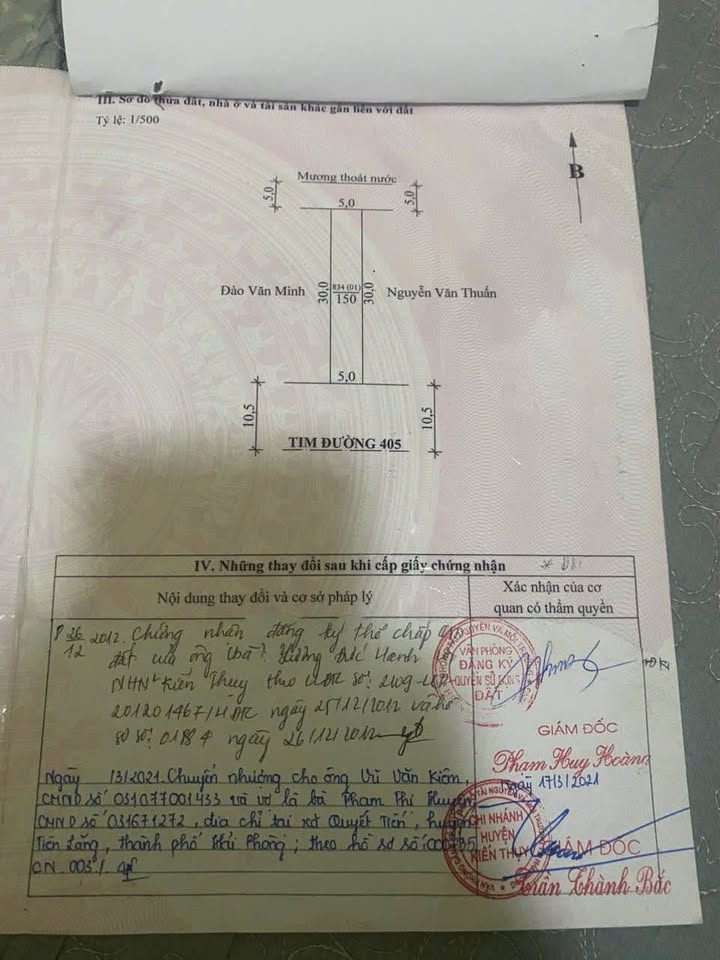 III. Sơ đồ thửa đất, nhà ở và tài sản khác gắn liền với đất
Tỷ lệ: 1/500
B
Mương thoát nước
5,0
5,0
5,0
Đào Văn Minh
30,0
834 (01)
150
30,0
Nguyễn Văn Thuấn
5,0
10,5
10,5
TIM ĐƯỜNG 405
IV. Những thay đổi sau khi cấp giấy chứng nhận
Nội dung thay đổi và cơ sở pháp lý
Xác nhận của cơ quan có thẩm quyền
26/12 2012. Chứng nhận đăng ký thế chấp
đất của ông (bà): Lương Đức Hạnh
NHN Kiến Thụy theo số: 2109
201201467/HĐTC ngày 25/12/2012 và hồ
sơ số: 0188 ngày 26/12/2012
VĂN PHÒNG
ĐĂNG KÝ
QUYỀN SỬ DỤNG
ĐẤT
GIÁM ĐỐC
Phạm Huy Hoàng
Ngày 17/3/2021
Ngày /3/2021. Chuyển nhượng cho ông Vũ Văn Kiên,
CMND số 031077001433 và vợ là bà Phạm Thị Huyền
CMND số 031671272, địa chỉ tại xã Quyết Tiến, huyện
Tiên Lãng, thành phố Hải Phòng; theo hồ sơ số
CN.003/.
CHI NHÁNH
HUYỆN
KIẾN THỤY
GIÁM ĐỐC
Trần Thành Bắc